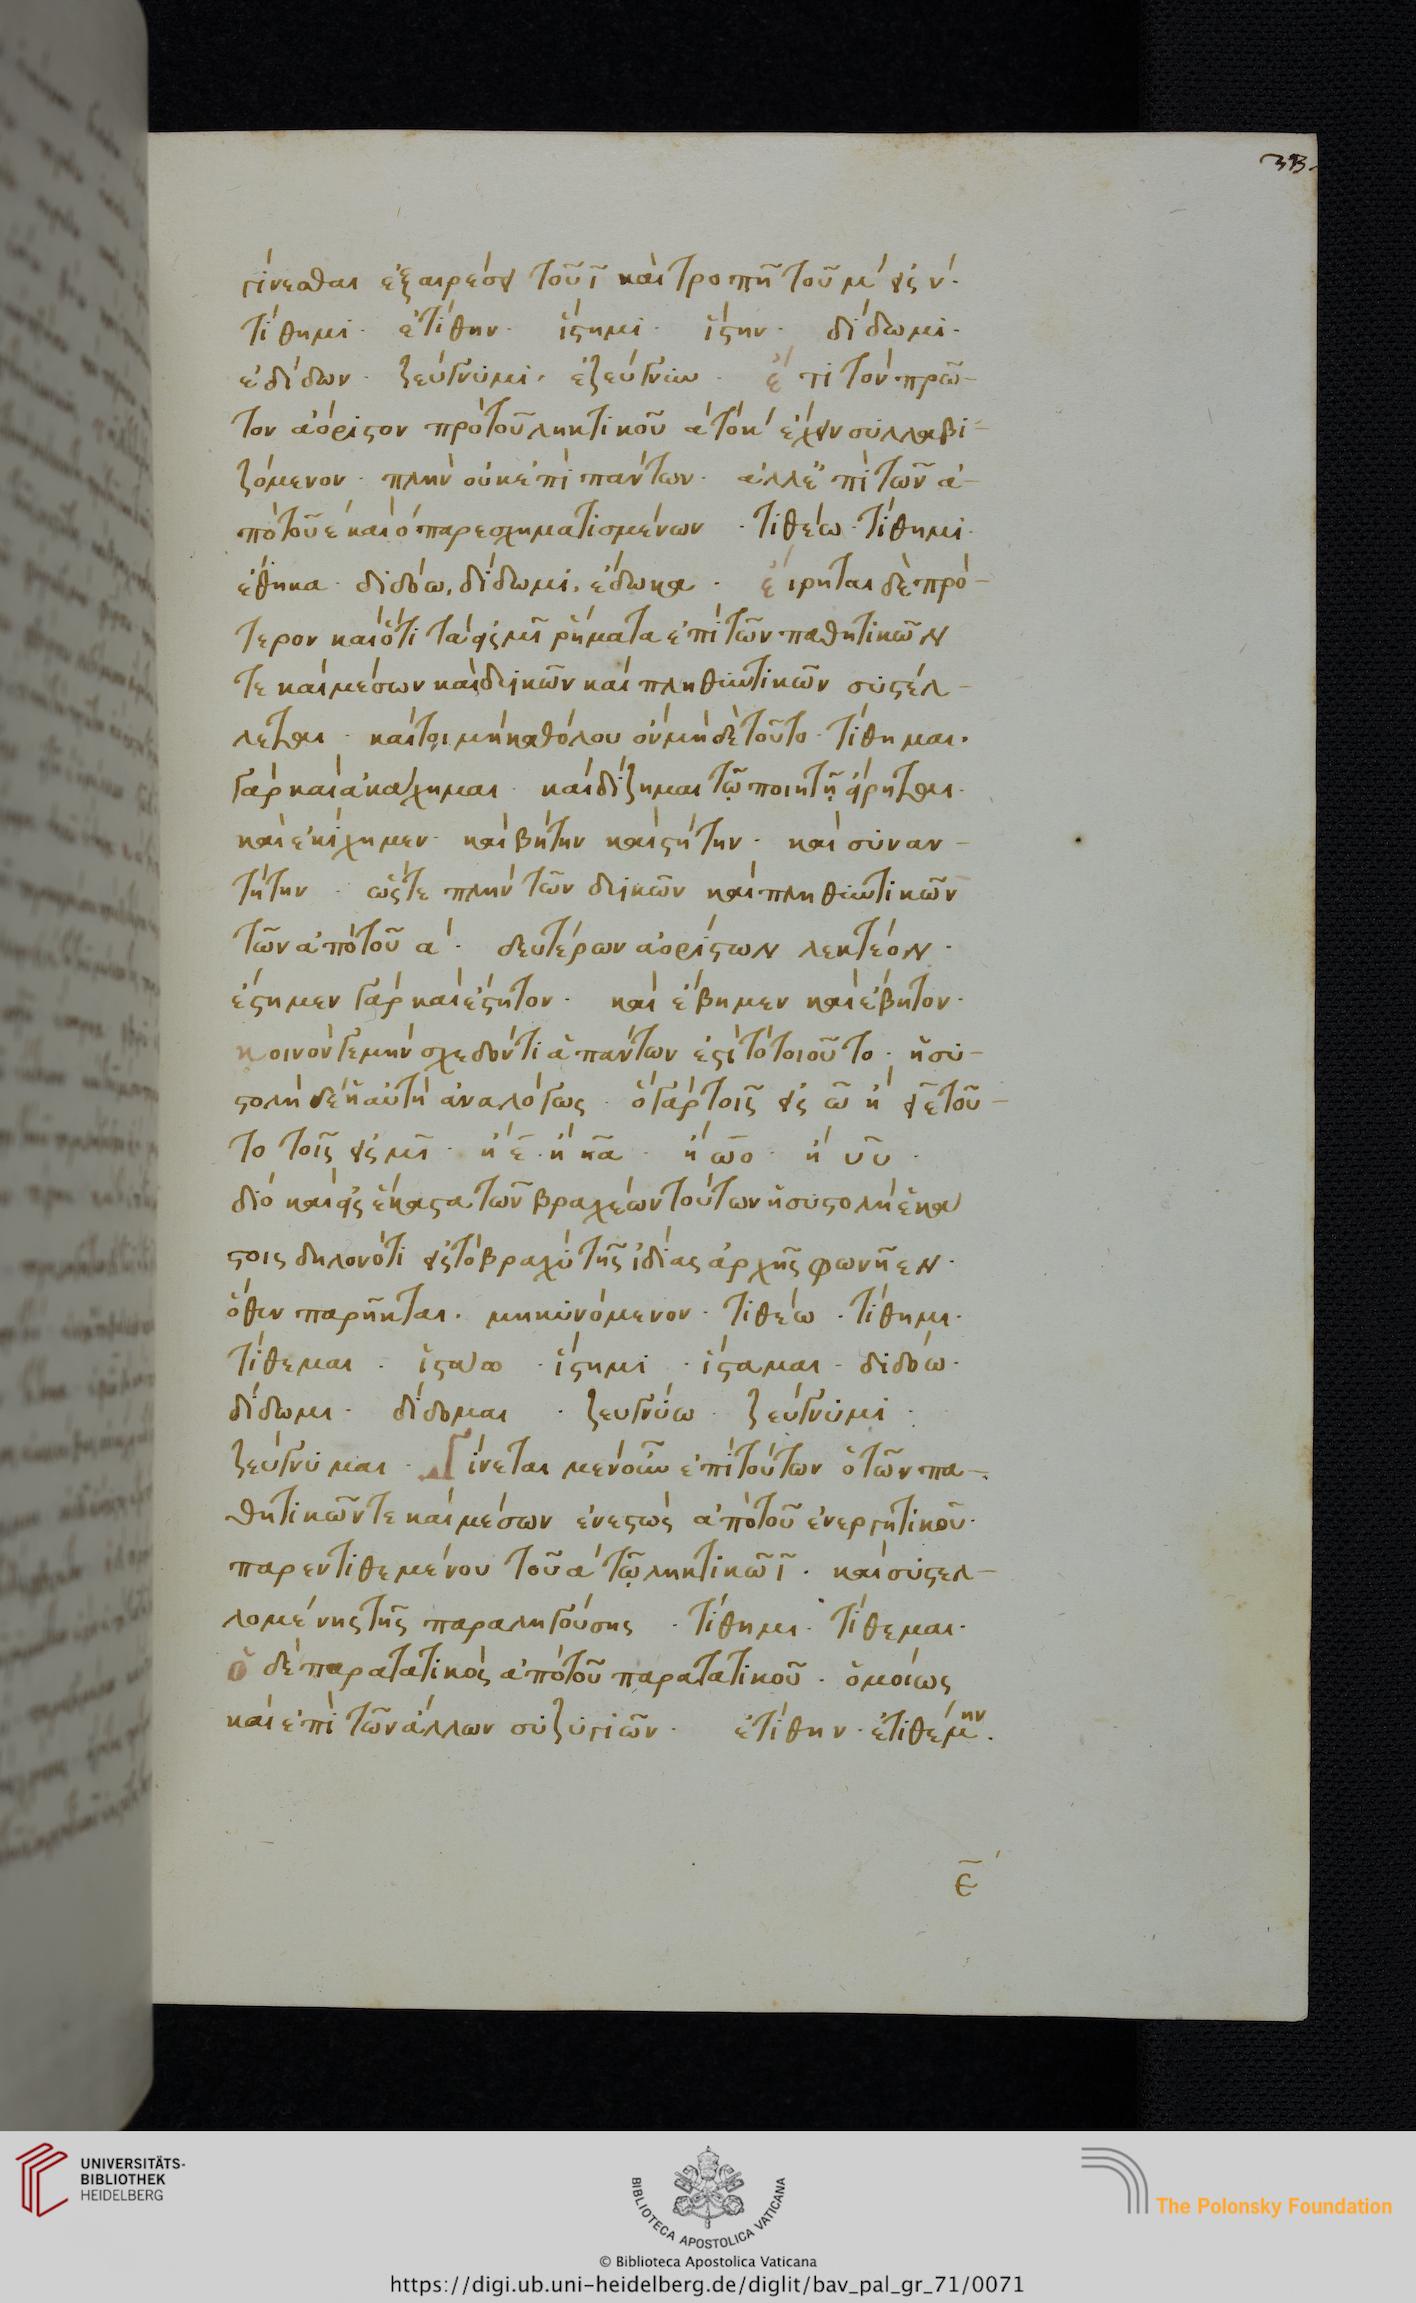 33.
γίνεσθαι ἐξαιρέσει τοῦ ῑ καὶ τροπῇ τοῦ μ΄ εἰς ν΄.
τίθημι· ἐτίθην· ἵστημι· ἵστην· δίδωμι·
ἐδίδων· ζεύγνυμι, ἐζεύγνυν· ἔτι τὸν πρῶ-
τον ἀόριστον πρὸ τοῦ ληκτικοῦ α τὸ κ΄ ἔχειν συλλαβι-
ζόμενον· πλὴν οὐκ ἐπὶ πάντων· ἀλλ' ἐπὶ τῶν ἀ-
πὸ τοῦ ε καὶ ο παρεσχηματισμένων· τιθέω· τίθημι·
ἔθηκα· διδόω, δίδωμι, ἔδωκα· εἴρηται δὲ πρό-
τερον καὶ ὅτι τὰ εἰς μῑ ῥήματα ἐπὶ τῶν παθητικῶν
τε καὶ μέσων καὶ δυϊκῶν καὶ πληθυντικῶν συστέλ-
λεται· καίτοι μὴ καθόλου οὐ μὴ δὲ τοῦτο· τίθημαι·
γὰρ καὶ ἀκάχημαι· καὶ δίζημαι τῷ ποιητῇ εἴρηται·
καὶ ἐκίχημεν· καὶ βήτην καὶ στήτην· καὶ συναν-
τήτην· ὥστε πλὴν τῶν δυϊκῶν καὶ πληθυντικῶν
τῶν ἀπὸ τοῦ α΄· δευτέρων ἀορίστων λεκτέον·
ἔστημεν γὰρ καὶ ἔστητον· καὶ ἔβημεν καὶ ἔβητον·
κοινὸν γε μὴν σχεδόν τι ἁπάντων ἐστὶ τὸ τοιοῦτο· ἡ συ-
στολὴ δὲ ἡ αὐτὴ ἀναλόγως· ὃ γὰρ τοῖς εἰς ω̄ ἡ εῖ τοῦ-
το τοῖς εἰς μῑ· ἡ ε̄· ἡ κᾱ· ἡ ω̄ο· ἡ ῡυ·
διὸ καὶ εἰς ἕκαστα τῶν βραχέων τούτων ἡ συστολὴ ἑκά
στοις δηλονότι εἰς τὸ βραχὺ τῆς ἰδίας ἀρχῆς φωνῆεν·
ὅθεν παρῆκται· μηκυνόμενον· τιθέω· τίθημι·
τίθεμαι· ἱστάω· ἵστημι· ἵσταμαι· διδόω·
δίδωμι· δίδομαι· ζευγνύω· ζεύγνυμι·
ζεύγνυμαι· Γίνεται μὲν οὖν ἐπὶ τούτων ὁ τῶν πα-
θητικῶν τε καὶ μέσων ἐνεστὼς ἀπὸ τοῦ ἐνεργητικοῦ·
παρεντιθεμένου τοῦ α΄ τῷ ληκτικῷ ῑ· καὶ συστελ-
λομένης τῆς παραληγούσης· τίθημι· τίθεμαι·
ὁ δὲ παρατατικὸς ἀπὸ τοῦ παρατατικοῦ· ὁμοίως
καὶ ἐπὶ τῶν ἄλλων συζυγιῶν· ἐτίθην· ἐτιθέμην.
ε̄΄
UNIVERSITÄTS-
BIBLIOTHEK
HEIDELBERG
BIBLIOTECA APOSTOLICA VATICANA
The Polonsky Foundation
© Biblioteca Apostolica Vaticana
https://digi.ub.uni-heidelberg.de/diglit/bav_pal_gr_71/0071